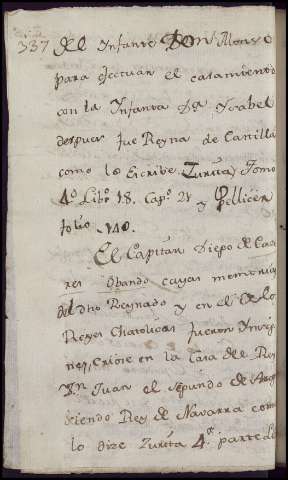 337
del Infante Don Alonso
para efectuar el casamiento
con la Infanta Da Ysabel
despues fue Reyna de Castilla
como lo escribe Zurita, Tomo
4o Libo 18. Capo 21 y Pellicer
folio 140.
El Capitan Diego de Cace
res Obando cuyas memorias
del dho Reynado y en el de los
Reyes Chatolicos fueron Ynsig
nes, Criose en la Casa del Rey
Dn Juan el segundo de Arago
siendo Rey de Navarra com
lo dize Zurita 4a parte li